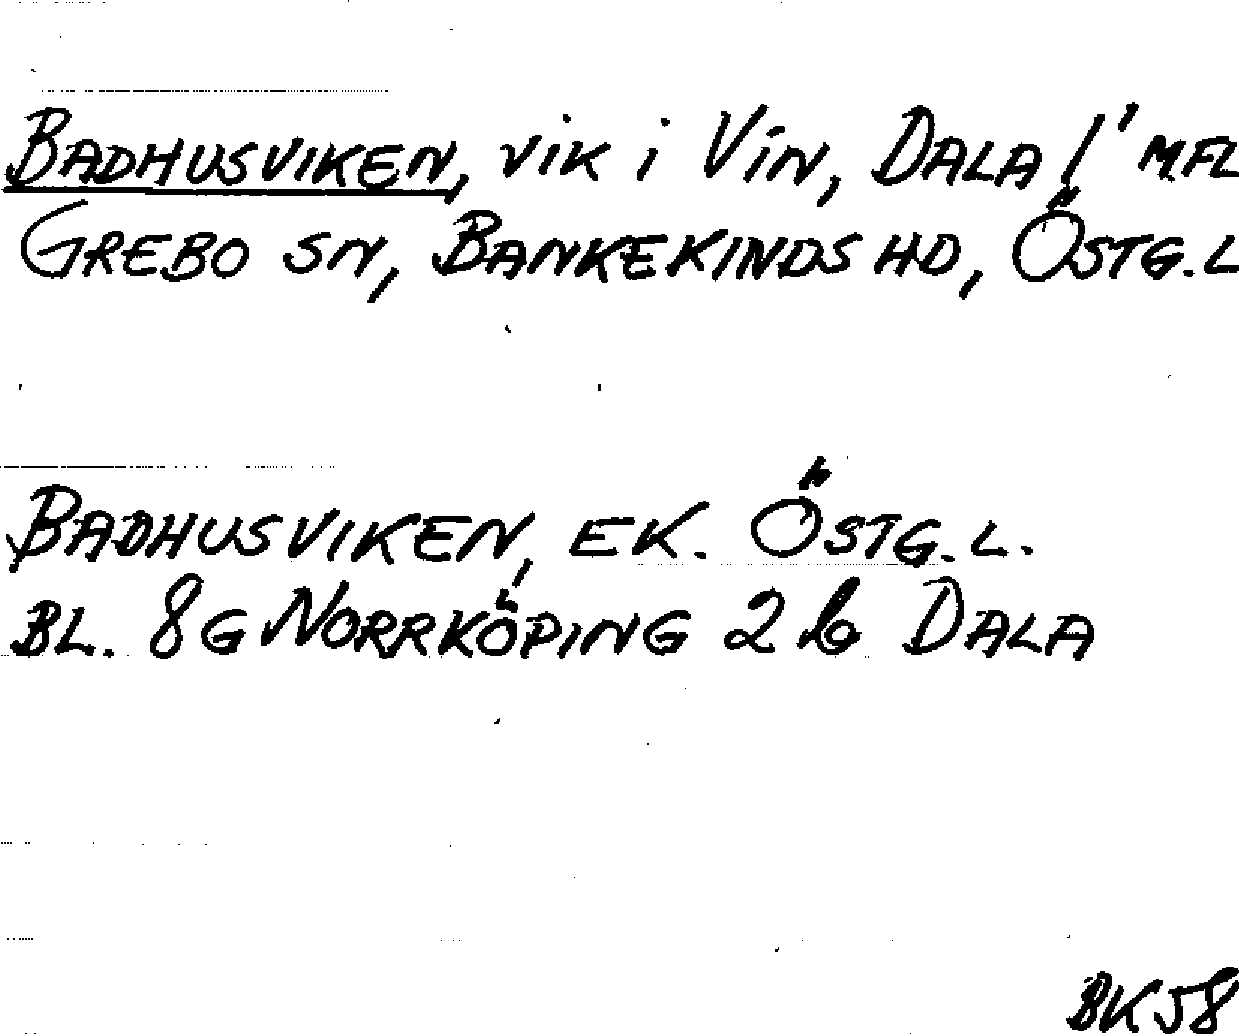 BADHUSVIKEN, VIK I VIN, DALA 1' MFL
GREBO SN, BANKEKINDS HD, ÖSTG.L
BADHUSVIKEN, EK. ÖSTG.L.
BL. 8G NORRKÖPING 2b DALA
BK58